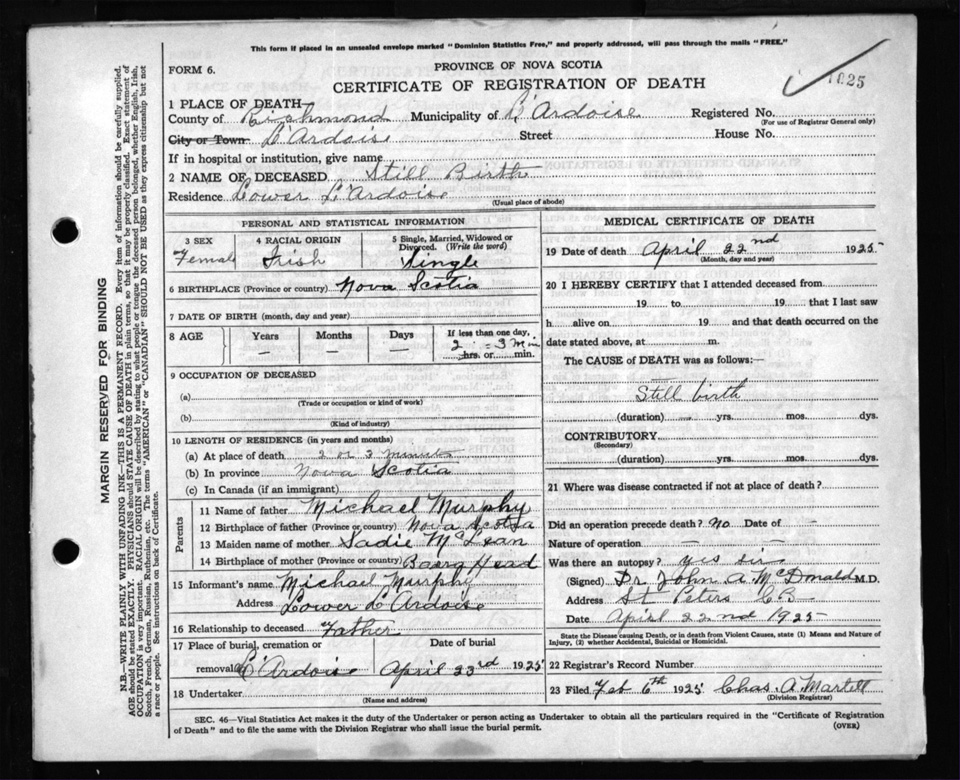 This form if placed in an unsealed envelope marked "Dominion Statistics Free," and properly addressed, will pass through the mails "FREE."
FORM 6.
PROVINCE OF NOVA SCOTIA
CERTIFICATE OF REGISTRATION OF DEATH
1 PLACE OF DEATH—
County of Richmond Municipality of L'Ardoise Registered No.
(For use of Registrar General only)
City or Town L'Ardoise Street House No.
If in hospital or institution, give name
2 NAME OF DECEASED Still Birth
Residence Lower L'Ardoise
(Usual place of abode)
PERSONAL AND STATISTICAL INFORMATION
3 SEX
Female
4 RACIAL ORIGIN
Irish
5 Single, Married, Widowed or
Divorced. (Write the word)
Single
6 BIRTHPLACE (Province or country) Nova Scotia
7 DATE OF BIRTH (month, day and year)
8 AGE
Years
—
Months
—
Days
—
If less than one day,
2 - 3 Min
hrs. or min.
9 OCCUPATION OF DECEASED
(a)
(Trade or occupation or kind of work)
(b)
(Kind of industry)
10 LENGTH OF RESIDENCE (in years and months)
(a) At place of death 2 or 3 minutes
(b) In province Nova Scotia
(c) In Canada (if an immigrant)
Parents
11 Name of father Michael Murphy
12 Birthplace of father (Province or country) Nova Scotia
13 Maiden name of mother Sadie McLean
14 Birthplace of mother (Province or country) Head
15 Informant's name Michael Murphy
Address Lower L'Ardoise
16 Relationship to deceased Father
17 Place of burial, cremation or Date of burial
removal L'Ardoise April 23rd 1925
18 Undertaker
(Name and address)
MEDICAL CERTIFICATE OF DEATH
19 Date of death April 22nd 1925
(Month, day and year)
20 I HEREBY CERTIFY that I attended deceased from
19 to 19 that I last saw
h alive on 19 and that death occurred on the
date stated above, at m.
The CAUSE of DEATH was as follows:—
Still birth
(duration) yrs. mos. dys.
CONTRIBUTORY
(Secondary)
(duration) yrs. mos. dys.
21 Where was disease contracted if not at place of death?
Did an operation precede death? No Date of —
Nature of operation — —
Was there an autopsy? Yes sir
(Signed) Dr. John A McDonald M.D.
Address St Peters CB
Date April 22nd 1925
State the Disease causing Death, or in death from Violent Causes, state (1) Means and Nature of
Injury, (2) whether Accidental, Suicidal or Homicidal.
22 Registrar's Record Number
23 Filed Feb 6th 1925 Chas A Martell
(Division Registrar)
SEC. 46—Vital Statistics Act makes it the duty of the Undertaker or person acting as Undertaker to obtain all the particulars required in the "Certificate of Registration
of Death" and to file the same with the Division Registrar who shall issue the burial permit.
(OVER)
MARGIN RESERVED FOR BINDING
N.B.—WRITE PLAINLY WITH UNFADING INK—THIS IS A PERMANENT RECORD. Every item of information should be carefully supplied.
AGE should be stated EXACTLY. PHYSICIANS should STATE CAUSE OF DEATH in plain terms, so that it may be properly classified. Exact statement of
OCCUPATION is very important. RACIAL ORIGIN will be described by stating to what people or tongue the deceased person belonged, whether English, Irish,
Scotch, French, German, Russian, Ruthenian, etc. The terms "AMERICAN" or "CANADIAN" SHOULD NOT BE USED as they express citizenship but not
a race or people. See instructions on back of Certificate.